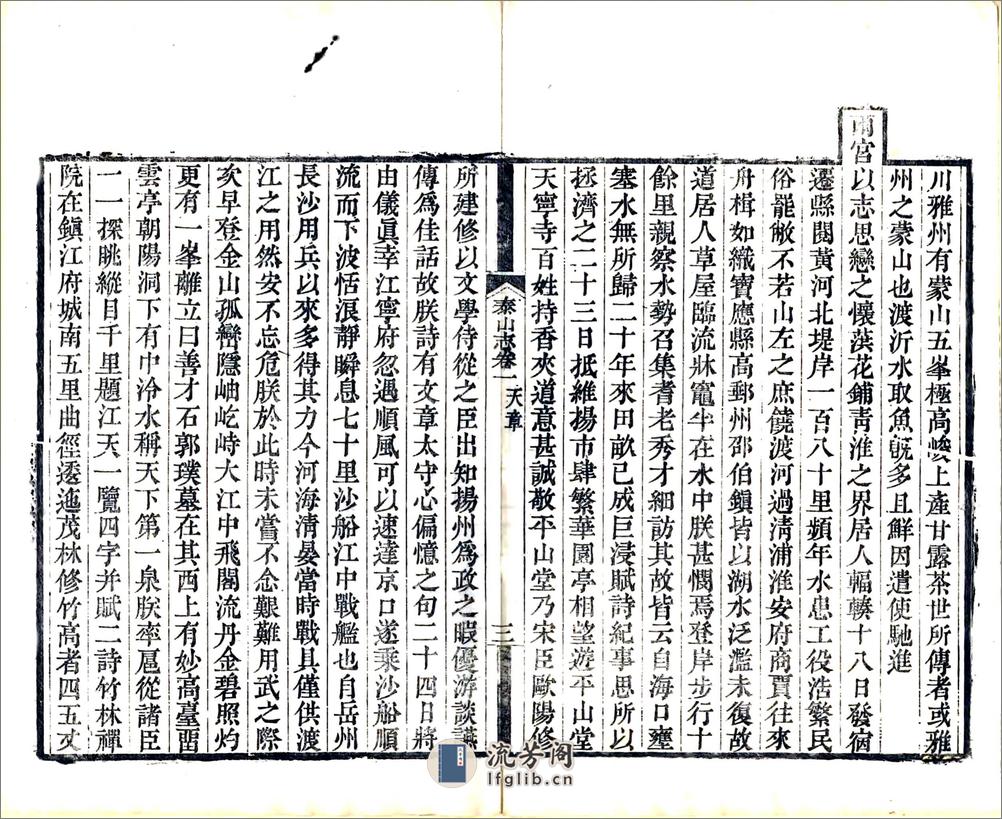 川雅州有蒙山五峯極高峻上產甘露茶世所傳者或雅
州之蒙山也渡沂水取魚旣多且鮮因遣使馳進
兩宮以志思戀之懷濱花鋪靑淮之界居人輻輳十八日發宿
遷縣閱黃河北堤岸一百八十里頻年水患工役浩繁民
俗罷敝不若山左之庶饒渡河過淸浦淮安府商賈往來
舟楫如織寶應縣高郵州邵伯鎭皆以湖水泛濫未復故
道居人草屋臨流牀竈半在水中朕甚憫焉登岸步行十
餘里親察水勢召集耆老秀才細訪其故皆云自海口壅
塞水無所歸二十年來田畝已成巨浸賦詩紀事思所以
拯濟之二十三日抵維揚市肆繁華園亭相望遊平山堂
天寧寺百姓持香夾道意甚誠敬平山堂乃宋臣歐陽修
泰山志卷一 天章
三
所建修以文學侍從之臣出知揚州爲政之暇優游談讌
傳爲佳話故朕詩有文章太守心偏憶之句二十四日將
由儀眞幸江寧府忽遇順風可以速達京口遂乘沙船順
流而下波恬浪靜瞬息七十里沙船江中戰艦也自岳州
長沙用兵以來多得其力今河海淸晏當時戰具僅供渡
江之用然安不忘危朕於此時未嘗不念艱難用武之際
次早登金山孤巒隱岫屹峙大江中飛閣流丹金碧照灼
更有一峯離立曰善才石郭璞墓在其西上有妙高臺畱
雲亭朝陽洞下有中泠水稱天下第一泉朕率扈從諸臣
一一探眺縱目千里題江天一覽四字并賦二詩竹林禪
院在鎭江府城南五里曲徑逶迤茂林修竹高者四五丈
流芳阁
lfglib.cn